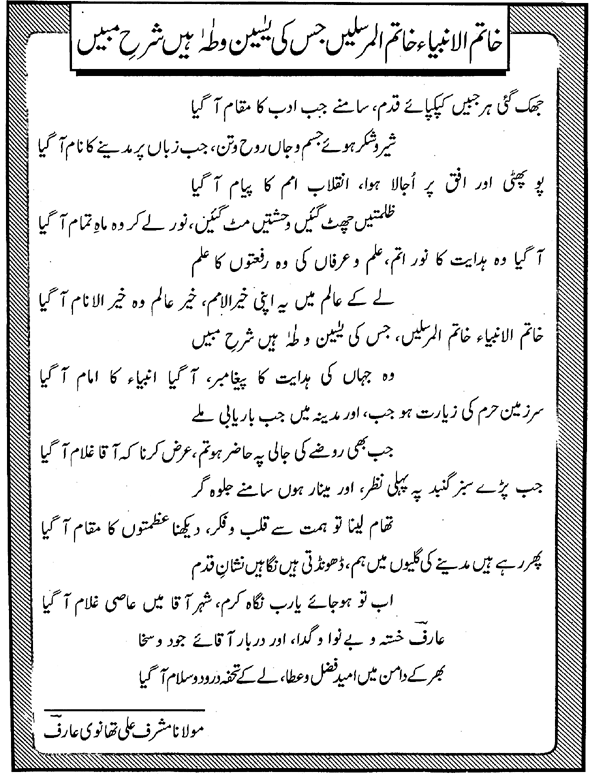 خاتم الانبیاء خاتم المرسلیں جس کی یٰسین و طٰہٰ ہیں شرحِ مبیں
جھک گئی ہر جبیں کپکپائے قدم، سامنے جب ادب کا مقام آ گیا
شیر و شکر ہوئے جسم و جاں روح و تن، جب زباں پر مدینے کا نام آ گیا
پو پھٹی اور افق پر اُجالا ہوا، انقلاب امم کا پیام آ گیا
ظلمتیں چھٹ گئیں وحشتیں مٹ گئیں، نور لے کر وہ ماہِ تمام آ گیا
آ گیا وہ ہدایت کا نور اتم، علم و عرفاں کی وہ رفعتوں کا علم
لے کے عالم میں یہ اپنی خیر الامم، خیر عالم وہ خیر الانام آ گیا
خاتم الانبیاء خاتم المرسلیں، جس کی یٰسین و طٰہٰ ہیں شرحِ مبیں
وہ جہاں کی ہدایت کا پیغامبر، آ گیا انبیاء کا امام آ گیا
سرزمین حرم کی زیارت ہو جب، اور مدینہ میں جب باریابی ملے
جب بھی روضے کی جالی پہ حاضر ہو تم، عرض کرنا کہ آقا غلام آ گیا
جب پڑے سبز گنبد پہ پہلی نظر، اور مینار ہوں سامنے جلوہ گر
تھام لینا تو ہمت سے قلب و فکر، دیکھنا عظمتوں کا مقام آ گیا
پھر رہے ہیں مدینے کی گلیوں میں ہم، ڈھونڈتی ہیں نگاہیں نشانِ قدم
اب تو ہو جائے یارب نگاہ کرم، شہر آقا میں عاصی غلام آ گیا
عارفؔ خستہ و بے نوا و گدا، اور دربار آقائے جود و سخا
بھر کے دامن میں امید فضل و عطا، لے کے تحفہ درود و سلام آ گیا
مولانا مشرف علی تھانوی عارفؔ